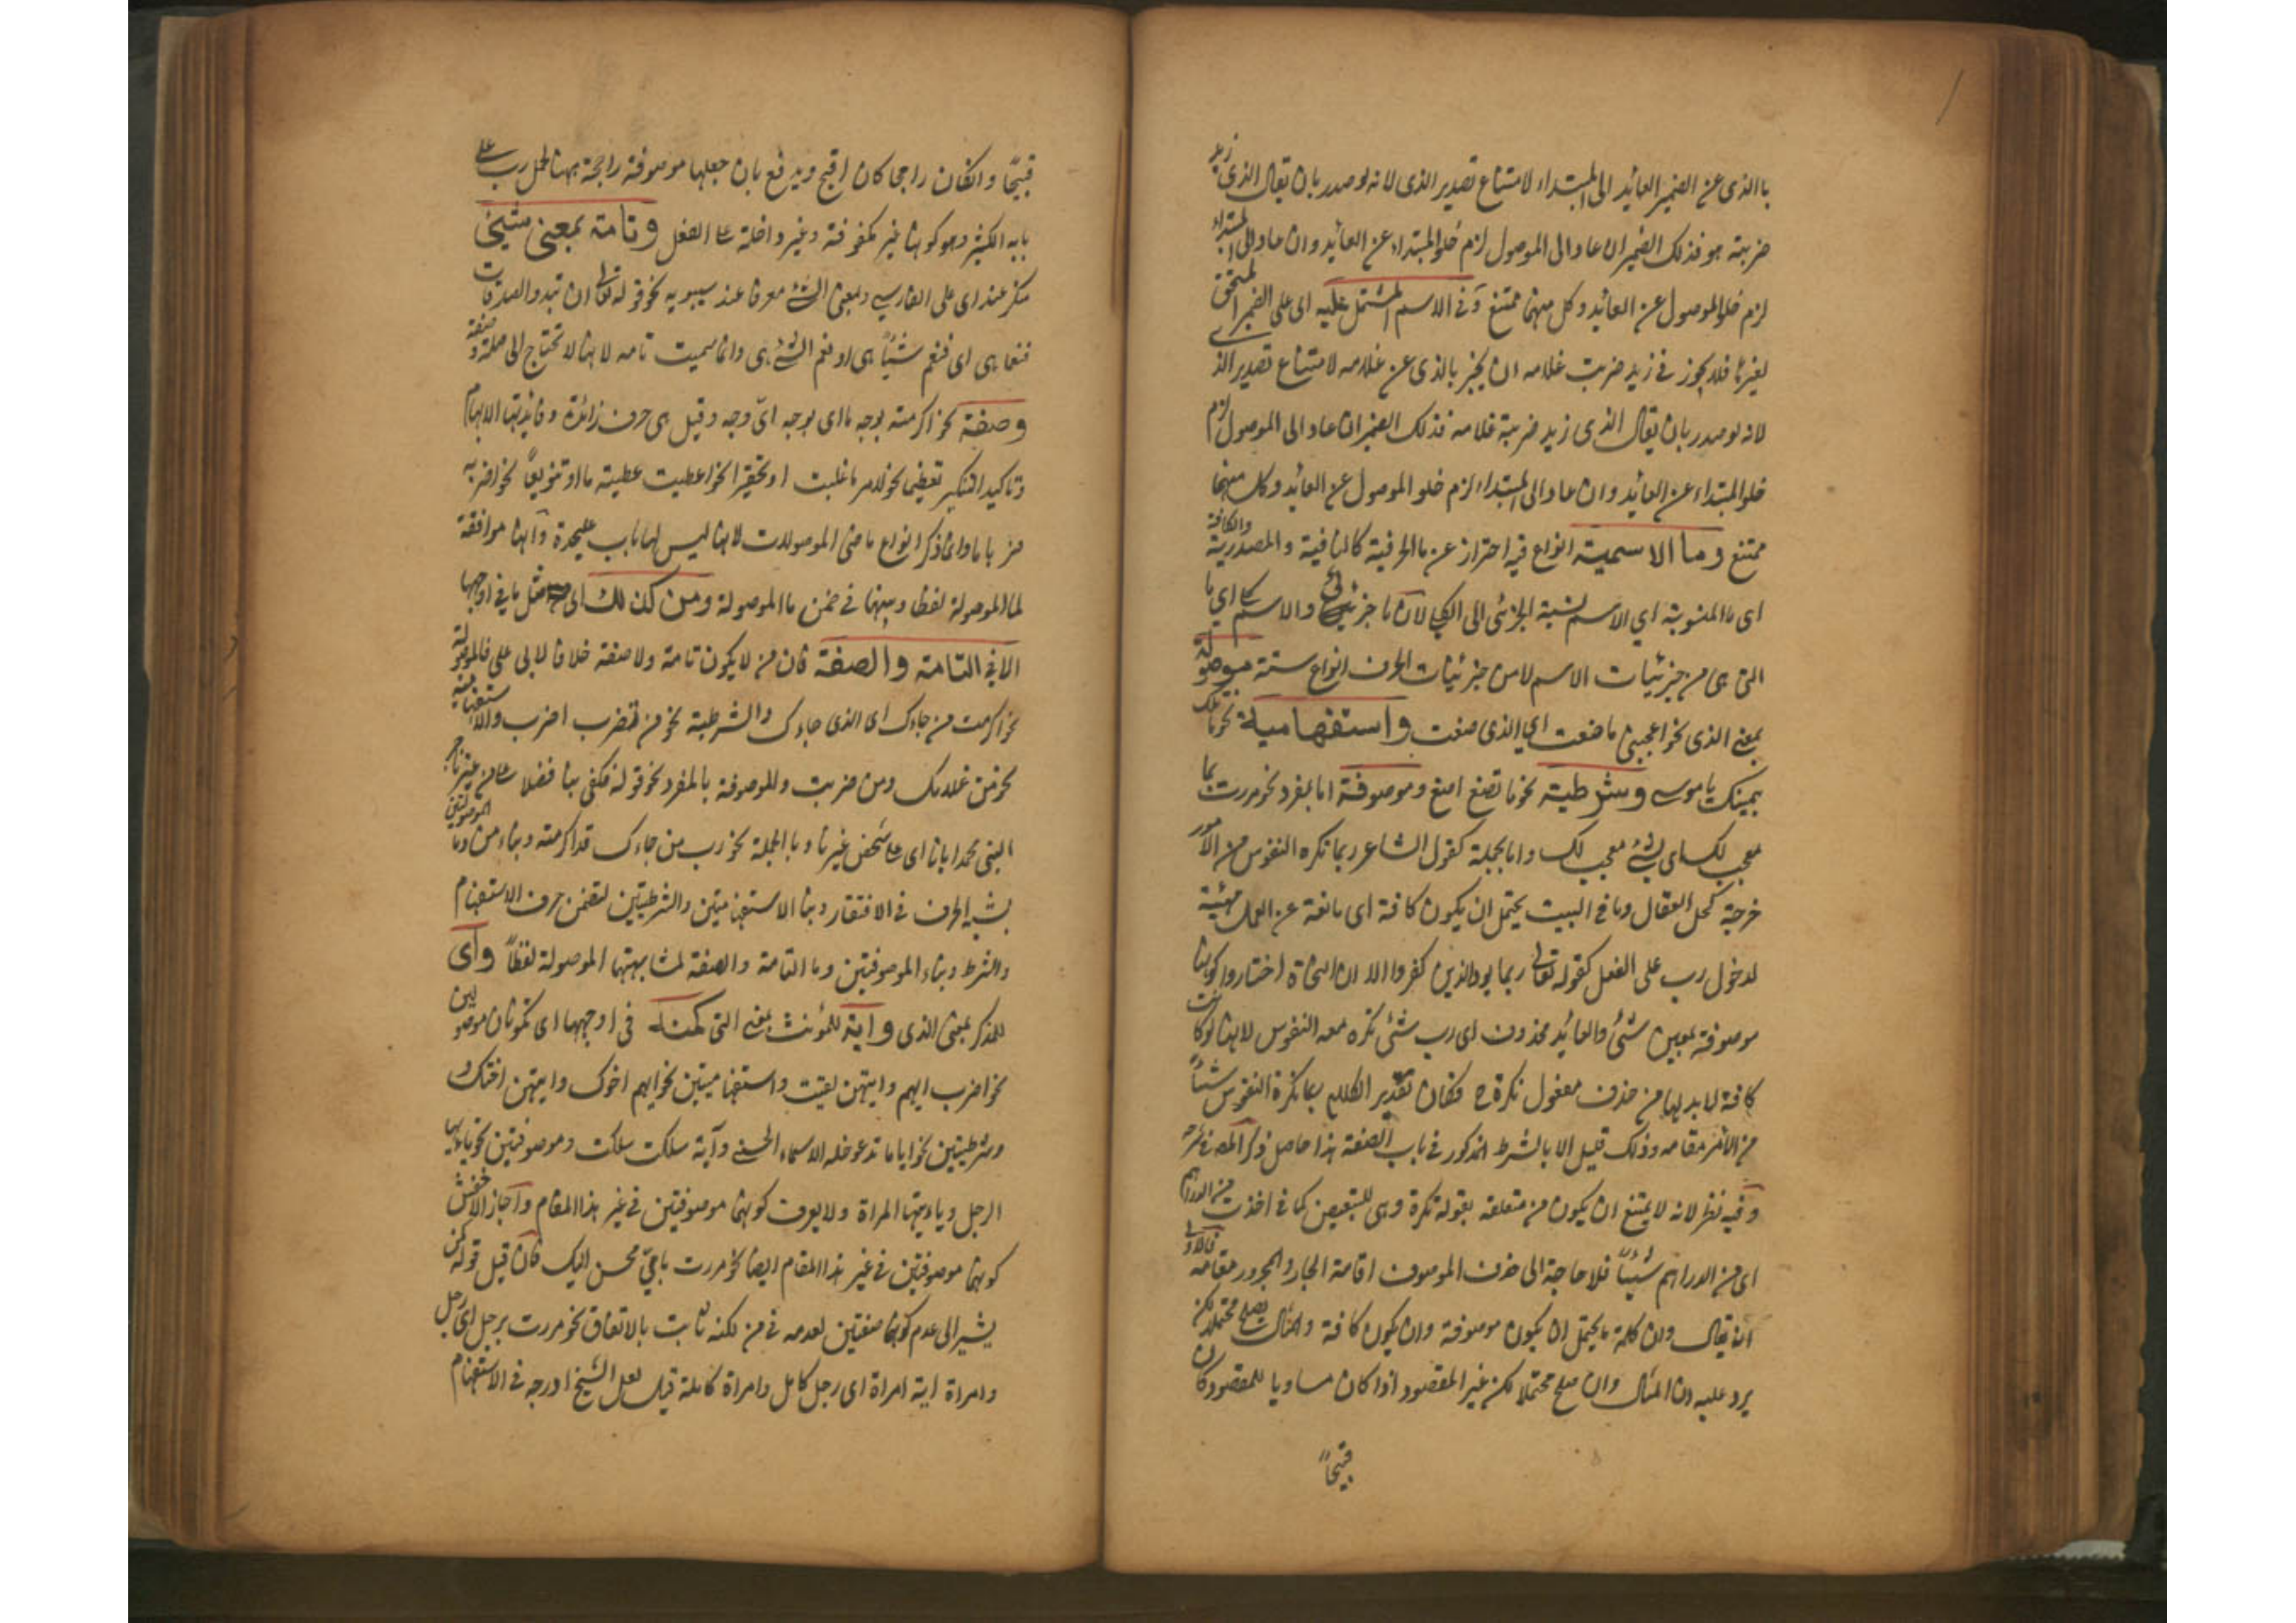 باالذى عن الضمير العائد الى المبتداء لامتناع تصدير الذى لانه لو صدر بان يقال الذى زيد
ضربته هو فذلك الضمير ان عاد الى الموصول لزم خلو المبتداء عن العائد وان عاد الى المبتداء
لزم خلو الموصول عن العائد وكل منهما ممتنع وفى الاسم المشتمل عليه اى على الضمير المستحق
لغيرها فلا يجوز فى زيد ضربت غلامه ان يخبر بالذى عن غلامه لامتناع تصدير الذى
لانه لو صدر بان يقال الذى زيد ضربته غلامه فذلك الضمير ان عاد الى الموصول لزم
خلو المبتداء عن العائد وان عاد الى المبتداء لزم خلو الموصول عن العائد وكل منهما
ممتنع وما الاسمية انواع فيه احتراز عن ما الحرفية كالنافية والمصدرية والكافة
اى ما المنسوبة اى الاسم نسبة الجزئى الى الكلى لان ما جزئى والاسم كلى اى ما
التى هى من جزئيات الاسم لا من جزئيات الحرف انواع ستة موصولة
بمعنى الذى نحو اعجبنى ما صنعت اى الذى صنعت واستفهامية نحو ما تلك
بيمينك يا موسى وشرطية نحو ما تصنع اصنع وموصوفة اما بمفرد نحو مررت بما
معجب لك اى بشئ معجب لك واما بجملة كقول الشاعر ربما تكره النفوس من الامور
فرجة كحل العقال وما فى البيت يحتمل ان يكون كافة اى مانعة عن العمل مهيئة
لدخول رب على الفعل كقوله تعالى ربما يود الذين كفروا الا ان النحاة اختاروا كونها
موصوفة بمعنى شئ والعائد محذوف اى رب شئ تكره معه النفوس لانها لو كانت
كافة لا بد لها من حذف مفعول نكرة ح فكان تقدير الكلام ربما تكره النفوس شيئاً
من الامر مقامه وذلك قليل الا بالشرط المذكور فى باب الصفة هذا حاصل ذكر المص فى شرحه
وفيه نظر لانه لا يمتنع ان يكون من متعلقه بقوله تكره وهى للتبعيض كما فى اخذت من الدراهم
اى من الدراهم شيئاً فلا حاجة الى حذف الموصوف اقامة الجار والمجرور مقامه فالاولى
ان يقال وان كلمة ما يحتمل ان يكون موصوفة وان يكون كافة والمثال يصلح محتملا لكن
يرد عليه ان المثال وان صلح محتملا لكن غير المقصود اذا كان مساويا للمقصود كان
قبيحاً
قبيحاً وان كان راجحا كان اقبح ويدفع بان جعلها موصوفة راجحة ههنا لحمل رب على
بابه الكثير وهو كونها غير مكفوفة وغير داخلة على الفعل وتامة بمعنى شئ
منكر عند ابى على الفارسى وبمعنى الشئ معرفا عند سيبويه نحو قوله تعالى ان تبدوا الصدقات
فنعما هى اى فنعم شيئاً هى او نعم الشئ هى وانما سميت تامة لانها لا تحتاج الى صلة وصفة
وصفة نحو اكرمته بوجه ما اى بوجه اىّ وجه وقيل هى حرف زائدة وفائدتها الابهام
وتاكيد التنكير تعظيما نحو لامر ما غلبت او تحقيرا نحو اعطيت عطية ما او تنويعاً نحو اضربه
ضربا ما وانما ذكر انواع ما فى الموصولات لانها ليس لها باب عليحدة وانها موافقة
لما الموصولة لفظا وبينها فى ضمن ما الموصولة ومن كذلك اى مثل ما فى اوجهها
الا فى التامة والصفة فان من لا يكون تامة ولا صفة خلافا لابى على فالموصولة
نحو اكرمت من جاءك اى الذى جاءك والشرطية نحو من تضرب اضرب والاستفهامية
نحو من غلامك ومن ضربت والموصوفة بالمفرد نحو قوله فكفى بنا فضلا على من غيرنا حب
النبى محمد ايانا اى على شخص غيرنا وبالجملة نحو رب من جاءك قد اكرمته وبناء من وما الموصولتين
بشبه الحرف فى الافتقار وبناء الاستفهاميتين والشرطيتين لتضمن حرف الاستفهام
والشرط وبناء الموصوفتين وما التامة والصفة لمشابهتها الموصولة لفظاً واى
للمذكر بمعنى الذى واية للمؤنث بمعنى التى كمن فى اوجهها اى تكونان موصولتين
نحو اضرب ايهم وايتهن لقيت واستفهاميتين نحو ايهم اخوك وايتهن اختك و
وشرطيتين نحو اياما تدعوا فله الاسماء الحسنى وآية سلكت سلكت وموصوفتين نحو يا ايها
الرجل ويا ايتها المراة ولا يعرف كونهما موصوفتين فى غير هذا المقام واجاز الاخفش
كونهما موصوفتين فى غير هذا المقام ايضا نحو مررت باىّ محسن اليك فان قيل قوله كمن
يشير الى عدم كونهما صفتين لعدمه فى من لكنه ثابت بالاتفاق نحو مررت برجل اى رجل
وامراة اية امراة اى رجل كامل وامراة كاملة قيل لعل الشيخ ادرجه فى الاستفهام